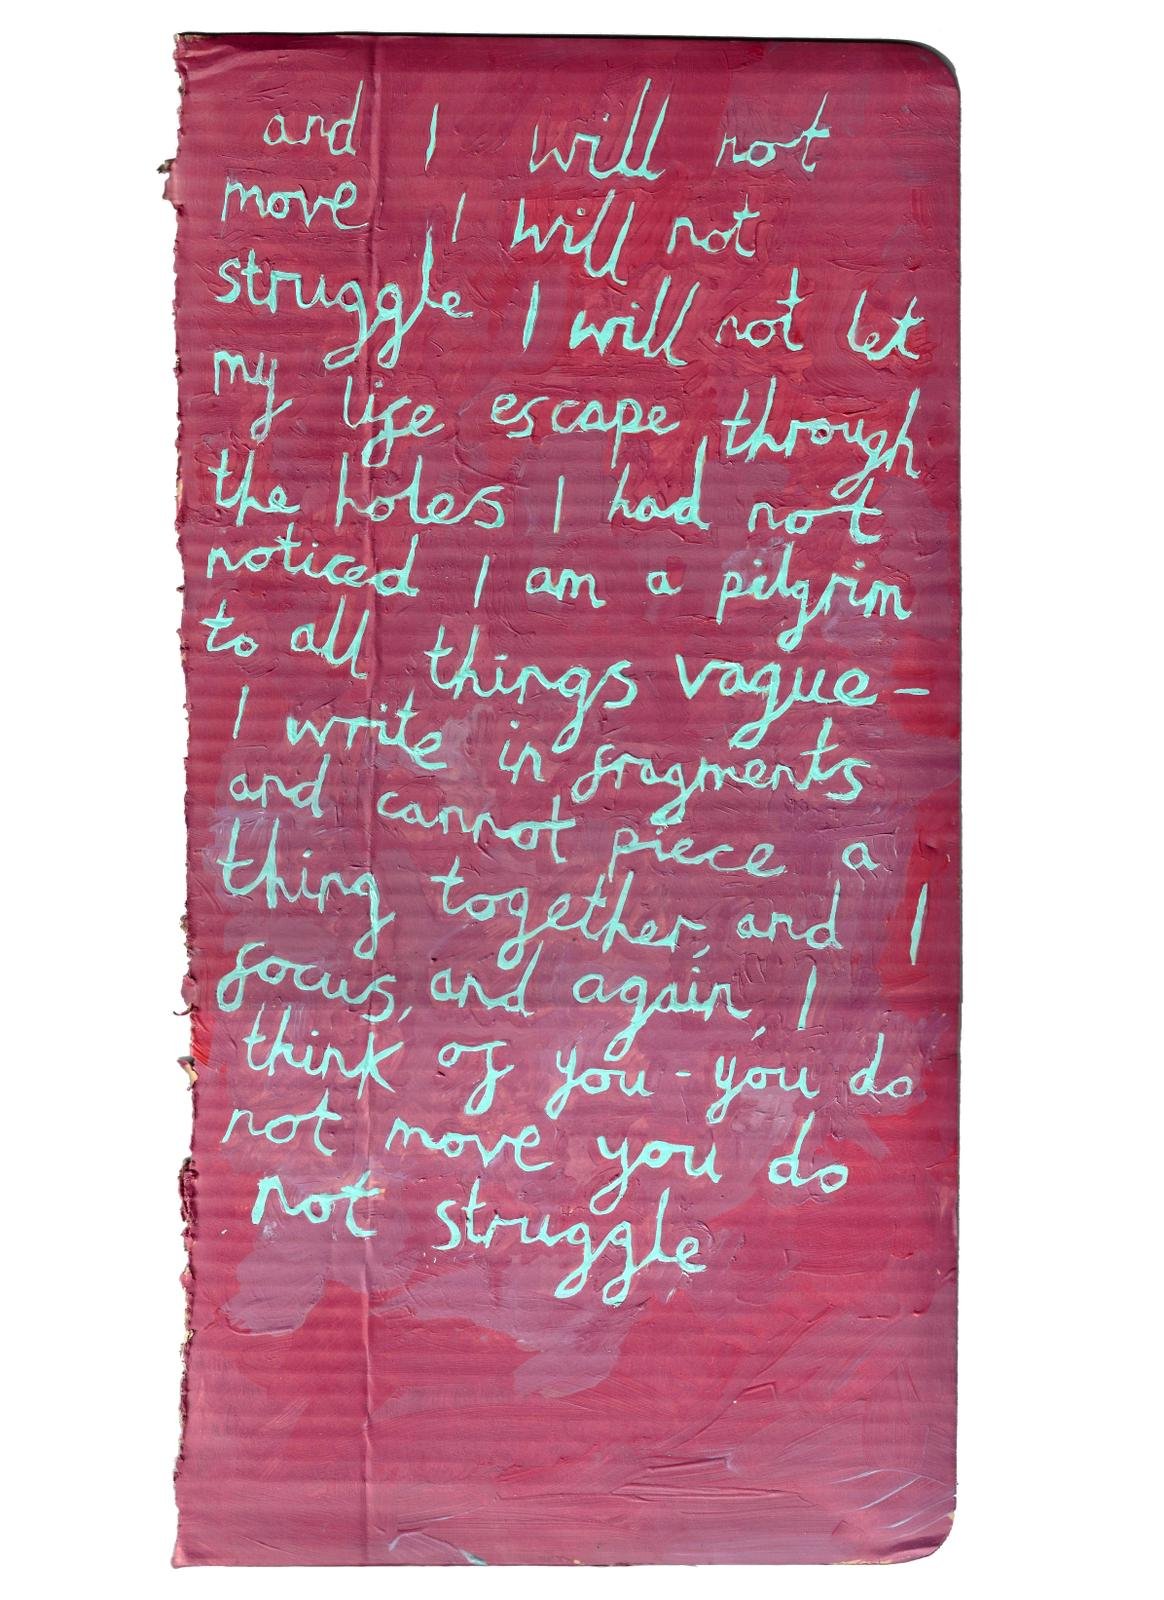 and I will not
move I will not
struggle I will not let
my life escape through
the holes I had not
noticed I am a pilgrim
to all things vague -
I write in fragments
and cannot piece a
thing together, and I
focus, and again, I
think of you - you do
not move you do
not struggle